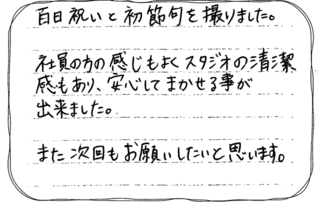 百日祝いと初節句を撮りました。
社員の方の感じもよくスタジオの清潔
感もあり、安心してまかせる事が
出来ました。
また次回もお願いしたいと思います。